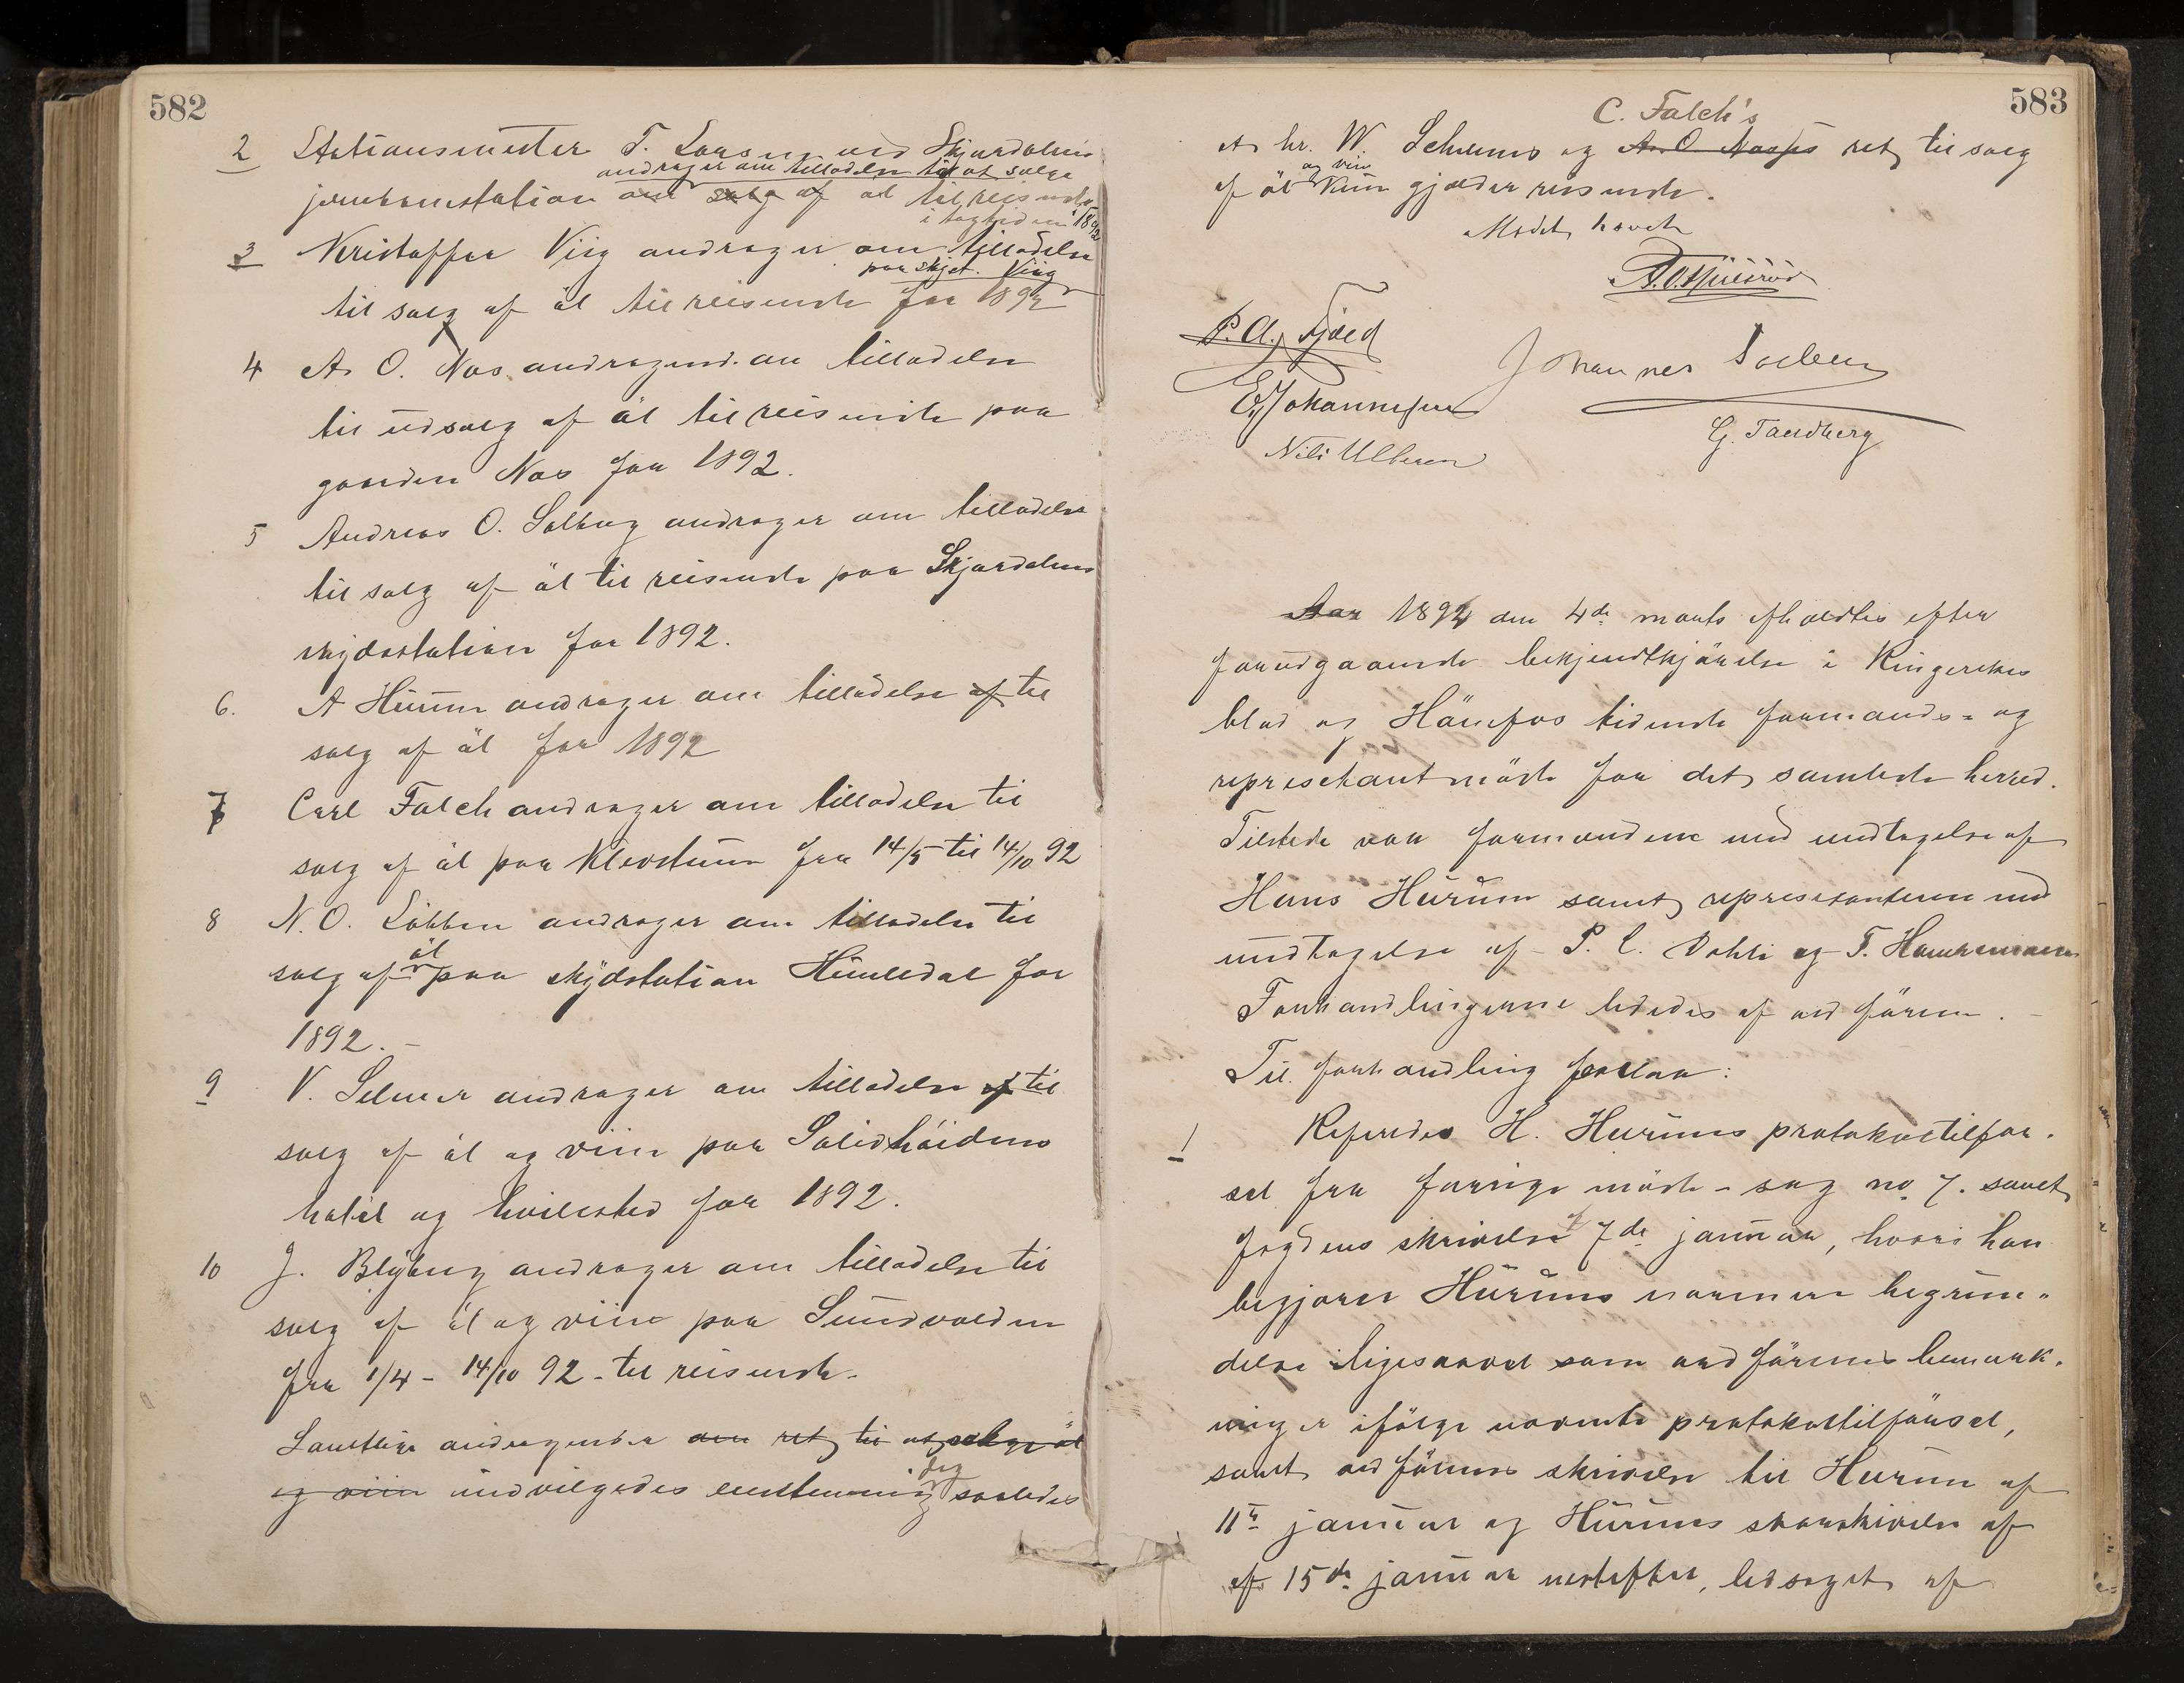 582
2 Stationsmester T. Larsen ved Skjærdalens
andrager om tilladelse til at sælge
jernbanestation om salg af øl til reisende
i tagtiden 1892
3 Kristoffer Viig andrager om tilladelse
paa skjst. Viig
til salg af øl til reisende for 1892
4 A. O. Næs andragende om tilladelse
til udsalg af øl til reisende paa
gaarden Næs for 1892.
5 Andreas O. Solberg andrager om tilladelse
til salg af øl til reisende paa Skjærdalens
skydsstation for 1892.
6. A Hurum andrager om tilladelse af til
salg af øl for 1892
7 Carl Falch andrager om tilladelse til
salg af øl paa Klevstuen fra 14/5 til 14/10 92
8 N. O. Løbben andrager om tilladelse til
øl
salg af paa skydsstation Humledal for
1892.-
9 V. Selmer andrager om tilladelse af til
salg af øl og viin paa Solidhøidens
hotel og hvilested for 1892.
10 J. Blyberg andrager om tilladelse til
salg af øl og viin paa Sundvolden
fra 1/4 - 14/10 92 - til reisende.
Samtlige andragender om ret til at sælge øl
dog
og viin indvilgedes eenstemmig saaledes
583
C. Falch's
at hr. W. Selmers og A. O. Næss's ret til salg
og viin
af øl kun gjælder reisende.
Mødet hævet
P. A. Fjeld
Johannes Solberg
E. Johannesen
G. Tandberg
Nils Ulleren
Aar 1892 den 4de marts afholdtes efter
forudgaaende bekjendtkjørelse i Ringerikes
blad og Hønefos tidende formands- og
represetantmøde for det samlede herred.
Tilstede var formændene med undtagelse af
Hans Hurum samt represetanterne med
undtagelse af P. C. Dahli og T.
Forhandlingerne lededes af ordføreren. -
Til forhandling forelaa:
1 Refereredes H. Hurums protokoltilfør-
sel fra forrige møde - sag no 7. samt
af
fogdens skrivelse 7de januar, hvori han
begjærer Hurums nærmere begrun-
delse ligesaavel som ordførerens bemærk-
ninger ifølge nævnte protokoltilførsel,
samt ordførerens skrivelse til Hurum af
11te januar og Hurums svarskrivelse af
af 15de januar nestefter, ledsaget af